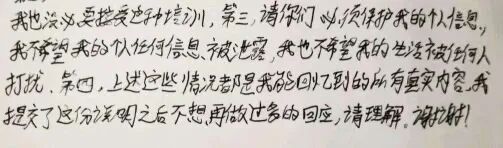 我也没必要接受这种培训，第三，请你们必须保护我的个人信息，
我不希望我的个人任何信息被泄露，我也不希望我的生活被任何人
打扰。第四，上述这些情况都是我能回忆到的所有真实内容，我
提交了这份说明之后不想再做过多的回应，请理解。谢谢！